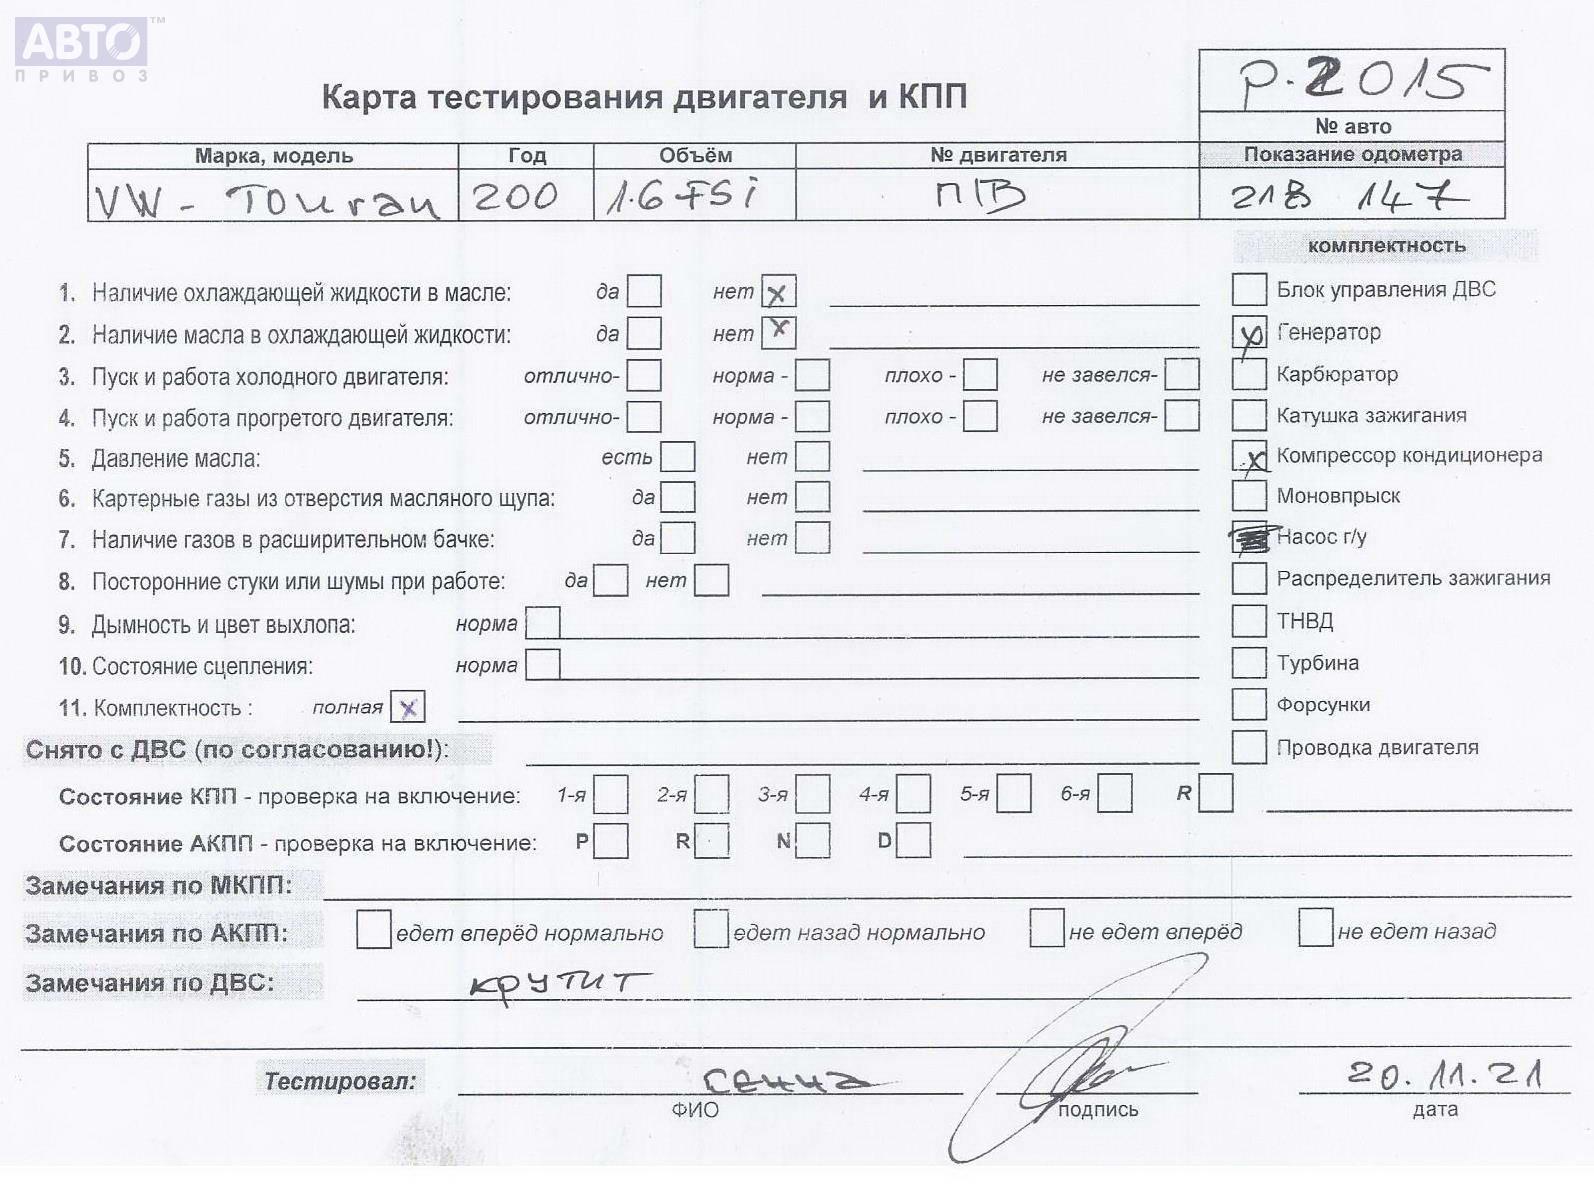 АВТО™
ПРИВОЗ
Карта тестирования двигателя и КПП
P.2015
№ авто
Марка, модель Год Объём № двигателя Показание одометра
VW - Touran 200 1.6 FSi 147
комплектность
1. Наличие охлаждающей жидкости в масле: да нет x
Блок управления ДВС
2. Наличие масла в охлаждающей жидкости: да нет x
Генератор
3. Пуск и работа холодного двигателя: отлично- норма - плохо - не завелся-
Карбюратор
4. Пуск и работа прогретого двигателя: отлично- норма - плохо - не завелся-
Катушка зажигания
5. Давление масла: есть нет
x Компрессор кондиционера
6. Картерные газы из отверстия масляного щупа: да нет
Моновпрыск
7. Наличие газов в расширительном бачке: да нет
Насос г/у
8. Посторонние стуки или шумы при работе: да нет
Распределитель зажигания
9. Дымность и цвет выхлопа: норма
ТНВД
10. Состояние сцепления: норма
Турбина
11. Комплектность : полная x
Форсунки
Снято с ДВС (по согласованию!):
Проводка двигателя
Состояние КПП - проверка на включение: 1-я 2-я 3-я 4-я 5-я 6-я R
Состояние АКПП - проверка на включение: P R N D
Замечания по МКПП:
Замечания по АКПП: едет вперёд нормально едет назад нормально не едет вперёд не едет назад
Замечания по ДВС: крутит
Тестировал: 20.11.21
ФИО подпись дата